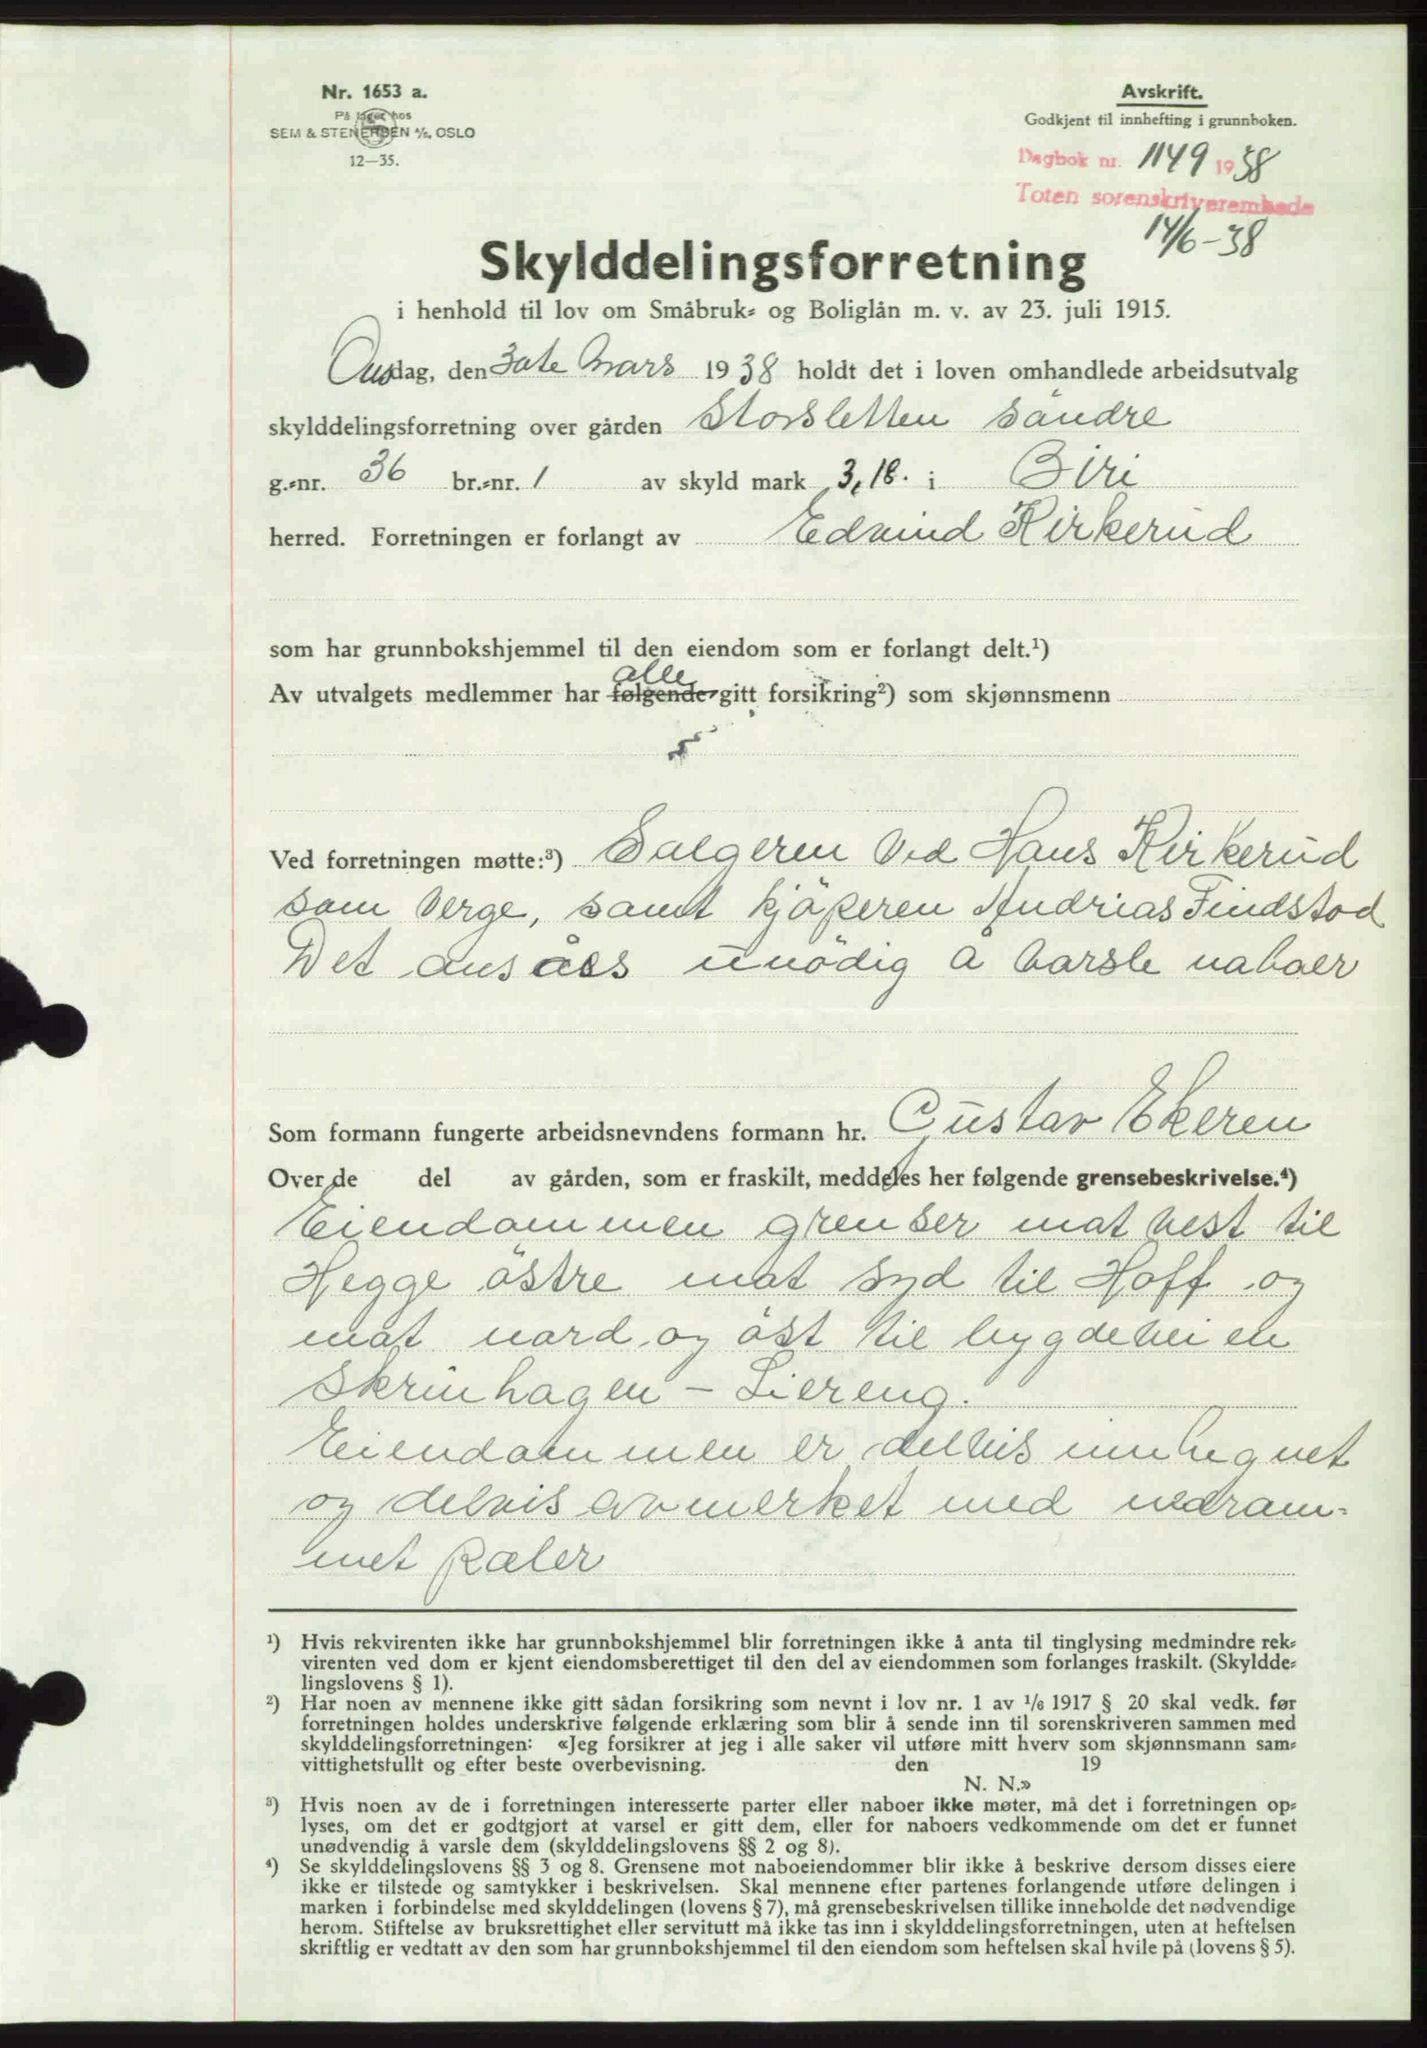 Nr. 1653 a.
På lager hos
SEM & STENERSEN A/S, OSLO
12—35.
Avskrift.
Godkjent til innhefting i grunnboken.
Dagbok nr. 1149 1938
Toten sorenskriverembede
14/6-38
Skylddelingsforretning
i henhold til lov om Småbruk= og Boliglån m. v. av 23. juli 1915.
Onsdag, den 30te Mars 1938 holdt det i loven omhandlede arbeidsutvalg
skylddelingsforretning over gården Storsletten söndre
g.=nr. 36 br.=nr. 1 av skyld mark 3,18. i Biri
herred. Forretningen er forlangt av Edvind Kirkerud
som har grunnbokshjemmel til den eiendom som er forlangt delt.¹)
alle
Av utvalgets medlemmer har følgende gitt forsikring²) som skjønnsmenn
Ved forretningen møtte:³) Selgeren ved Hans Kirkerud
som verge, samt kjöperen Andrias Findstad
Det ansåes unödig å varsle naboer
Som formann fungerte arbeidsnevndens formann hr. Gustav Ekeren
Over de del av gården, som er fraskilt, meddeles her følgende grensebeskrivelse.⁴)
Eiendommen grenser mot vest til
Hegge östre mot syd til Hoff og
mot nord og öst til bygdeveien
Skrinhagen – Liereng.
Eiendommen er delvis innhegnet
og delvis avmerket med nedram=
met pæler
¹) Hvis rekvirenten ikke har grunnbokshjemmel blir forretningen ikke å anta til tinglysing medmindre rek=
virenten ved dom er kjent eiendomsberettiget til den del av eiendommen som forlanges fraskilt. (Skyldde=
lingslovens § 1).
²) Har noen av mennene ikke gitt sådan forsikring som nevnt i lov nr. 1 av 1/6 1917 § 20 skal vedk. før
forretningen holdes underskrive følgende erklæring som blir å sende inn til sorenskriveren sammen med
skylddelingsforretningen: «Jeg forsikrer at jeg i alle saker vil utføre mitt hverv som skjønnsmann sam=
vittighetsfullt og efter beste overbevisning. den 19
N. N.»
³) Hvis noen av de i forretningen interesserte parter eller naboer ikke møter, må det i forretningen op=
lyses, om det er godtgjort at varsel er gitt dem, eller for naboers vedkommende om det er funnet
unødvendig å varsle dem (skylddelingslovens §§ 2 og 8).
⁴) Se skylddelingslovens §§ 3 og 8. Grensene mot naboeiendommer blir ikke å beskrive dersom disses eiere
ikke er tilstede og samtykker i beskrivelsen. Skal mennene efter partenes forlangende utføre delingen i
marken i forbindelse med skylddelingen (lovens § 7), må grensebeskrivelsen tillike inneholde det nødvendige
herom. Stiftelse av bruksrettighet eller servitutt må ikke tas inn i skylddelingsforretningen, uten at heftelsen
skriftlig er vedtatt av den som har grunnbokshjemmel til den eiendom som heftelsen skal hvile på (lovens § 5).